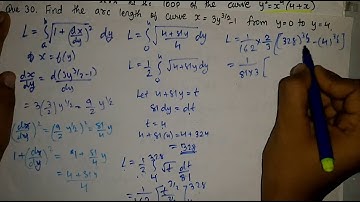 is the loop of the curve y²=x²(4+x)
Que 30. Find the arc length of curve x=3y^3/2-1 from y=0 to y=4.
L = ∫ √1+(dx/dy)² dy
if x=f(y)
dx/dy = d(3y^3/2-1)/dy
= 3(3/2)y^1/2 = 9/2 y^1/2
(dx/dy)² = (9/2 y^1/2)² = 81/4 y
1+(dx/dy)² = 1+81/4 y
= 4+81y/4
L = ∫₀⁴ √4+81y/4 dy
L = 1/2 ∫₀⁴ √4+81y dy
let 4+81y = t
81dy = dt
t = 4
4+81(4) = 4+324
= 328
L = 1/2 ∫₄³²⁸ √t dt/81
= 1/162
L = 1/162 × 2/3 [(328)^3/2-(4)^3/2]
= 1/81×3 [